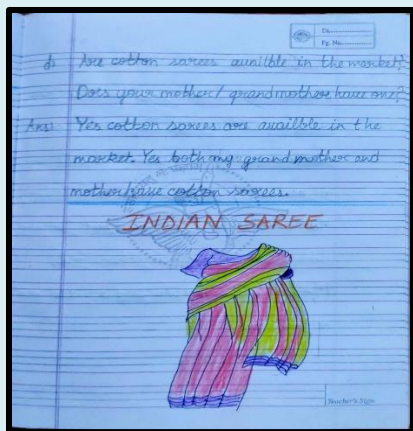 Dt.
Pg. No.
d) Are cotton sarees availble in the market?
Does your mother/ grandmother have one?
Ans) Yes cotton sarees are availble in the
market. Yes both my grand mother and
mother have cotton sarees.
INDIAN SAREE
Teacher's Sign